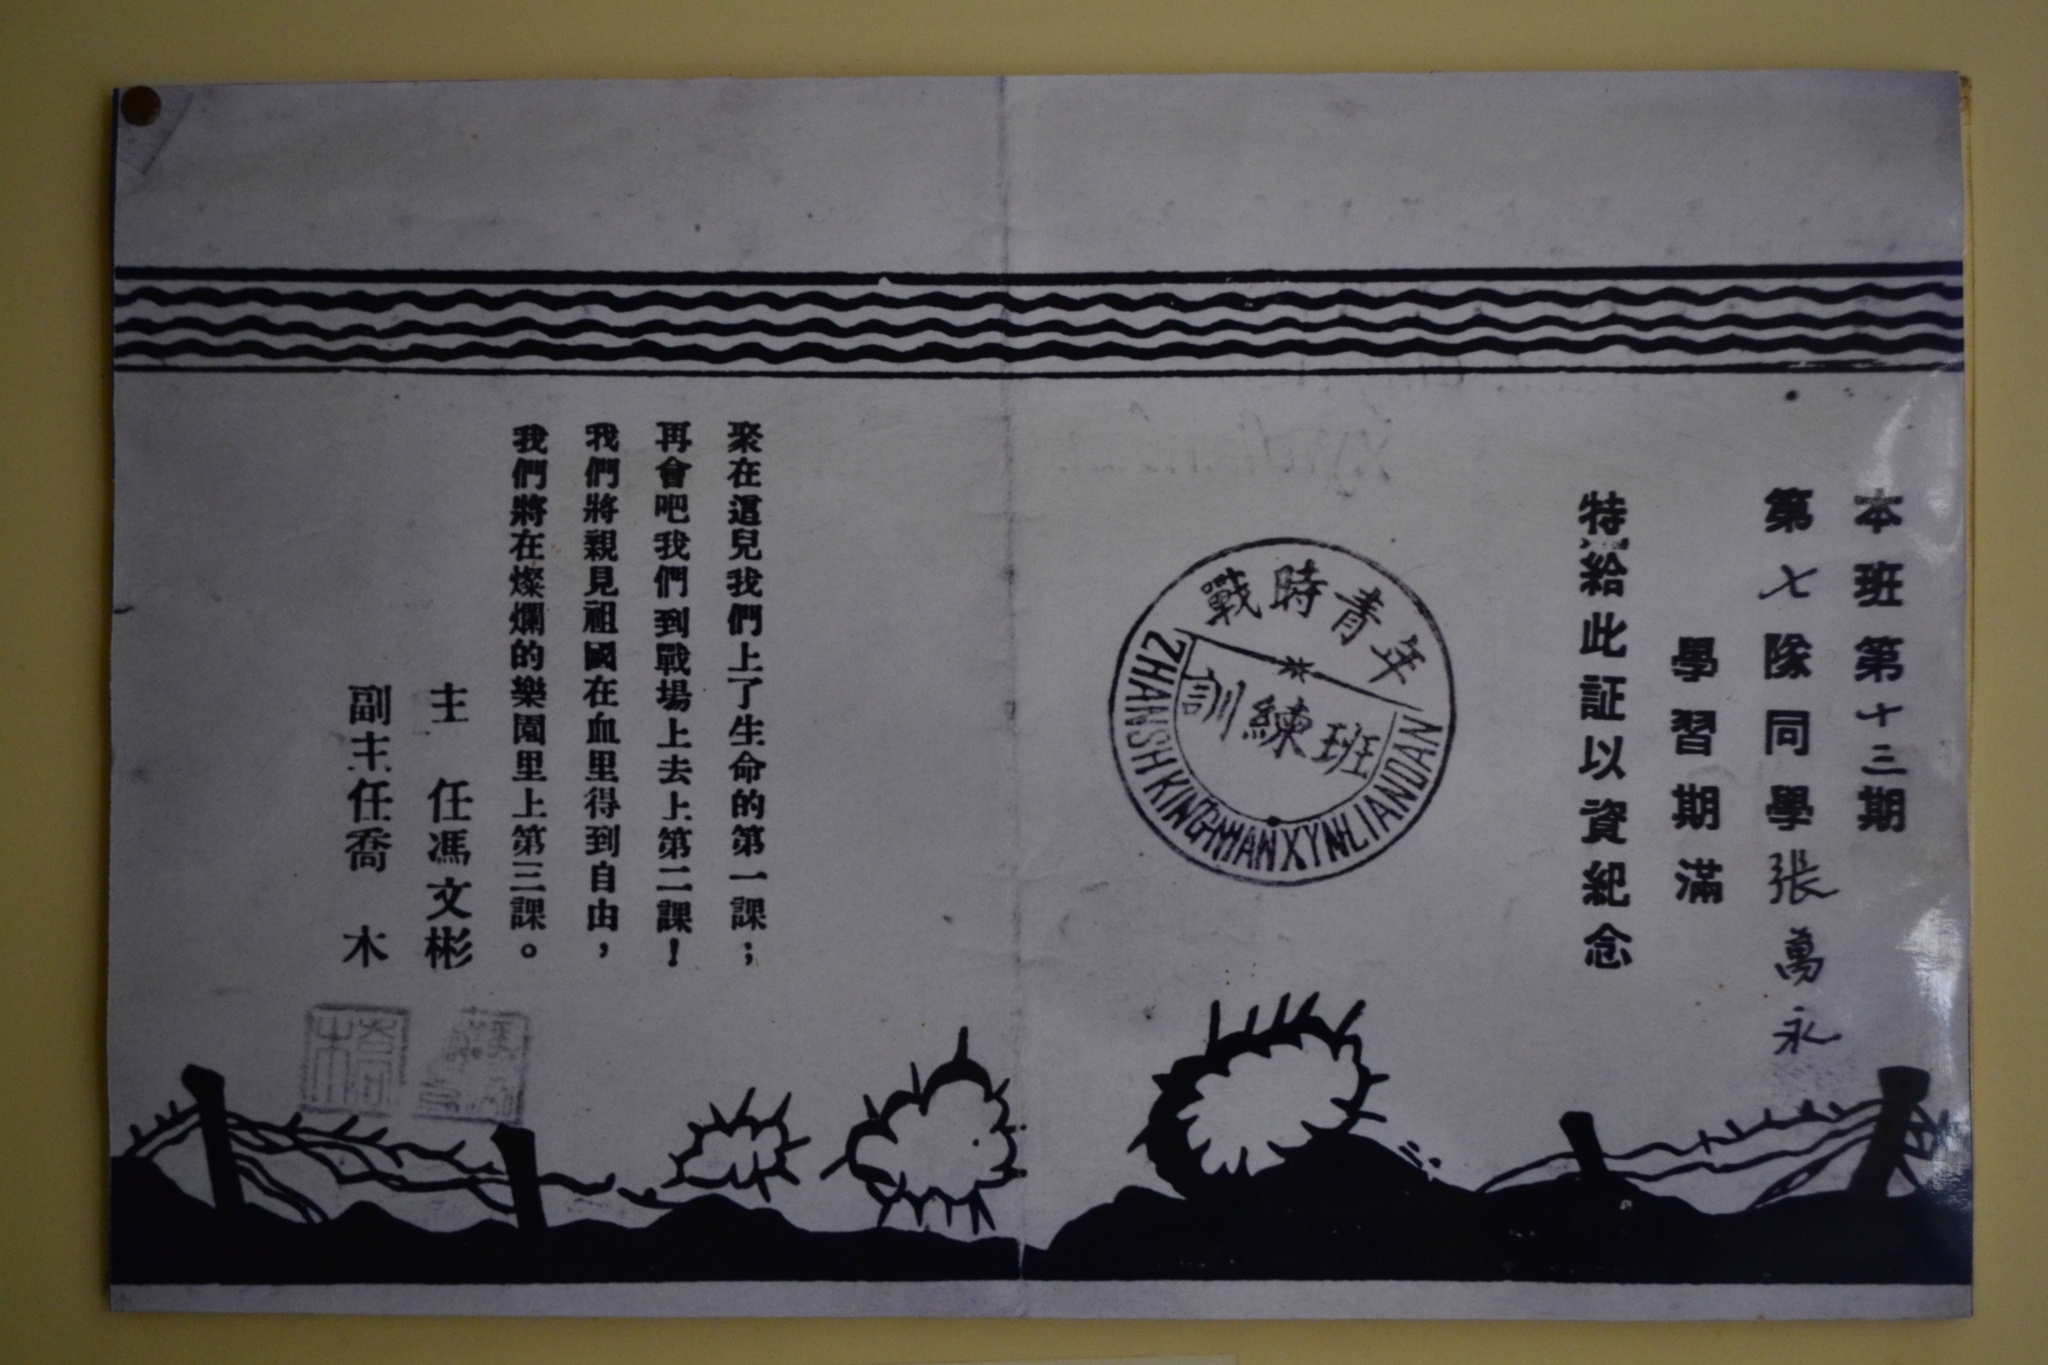 本班第十三期
第七隊同學張萬永
學習期滿
特給此証以資紀念
戰時青年
訓練班
聚在這兒我們上了生命的第一課；
再會吧我們到戰場上去上第二課！
我們將親見祖國在血里得到自由，
我們將在燦爛的樂園里上第三課。
主 任馮文彬
副主任喬 木